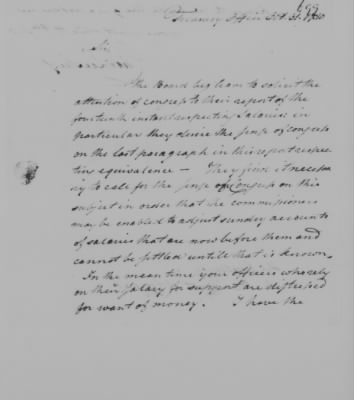 199
Treasury Office Oct. 31. 1780
Sir
The Board beg leave to solicit the
attention of congress to their report of the
fourteenth instant respecting Salaries in
particular they desire the sense of congress
on the last paragraph in this report respec
ting equivalence — They find it necessa
ry to call for the sense of Congress on this
subject in order that the commissioners
may be enabled to adjust sunday accounts
of salaries that are now before them and
cannot be settled untill that is known.
In the mean time your officers who rely
on their Salary for support are distressed
for want of money. I have the